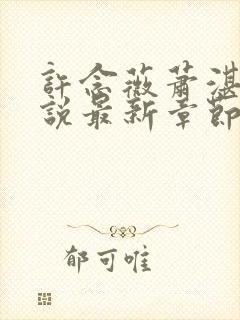 許念薇蕭湛
說最新章節
郁可唯